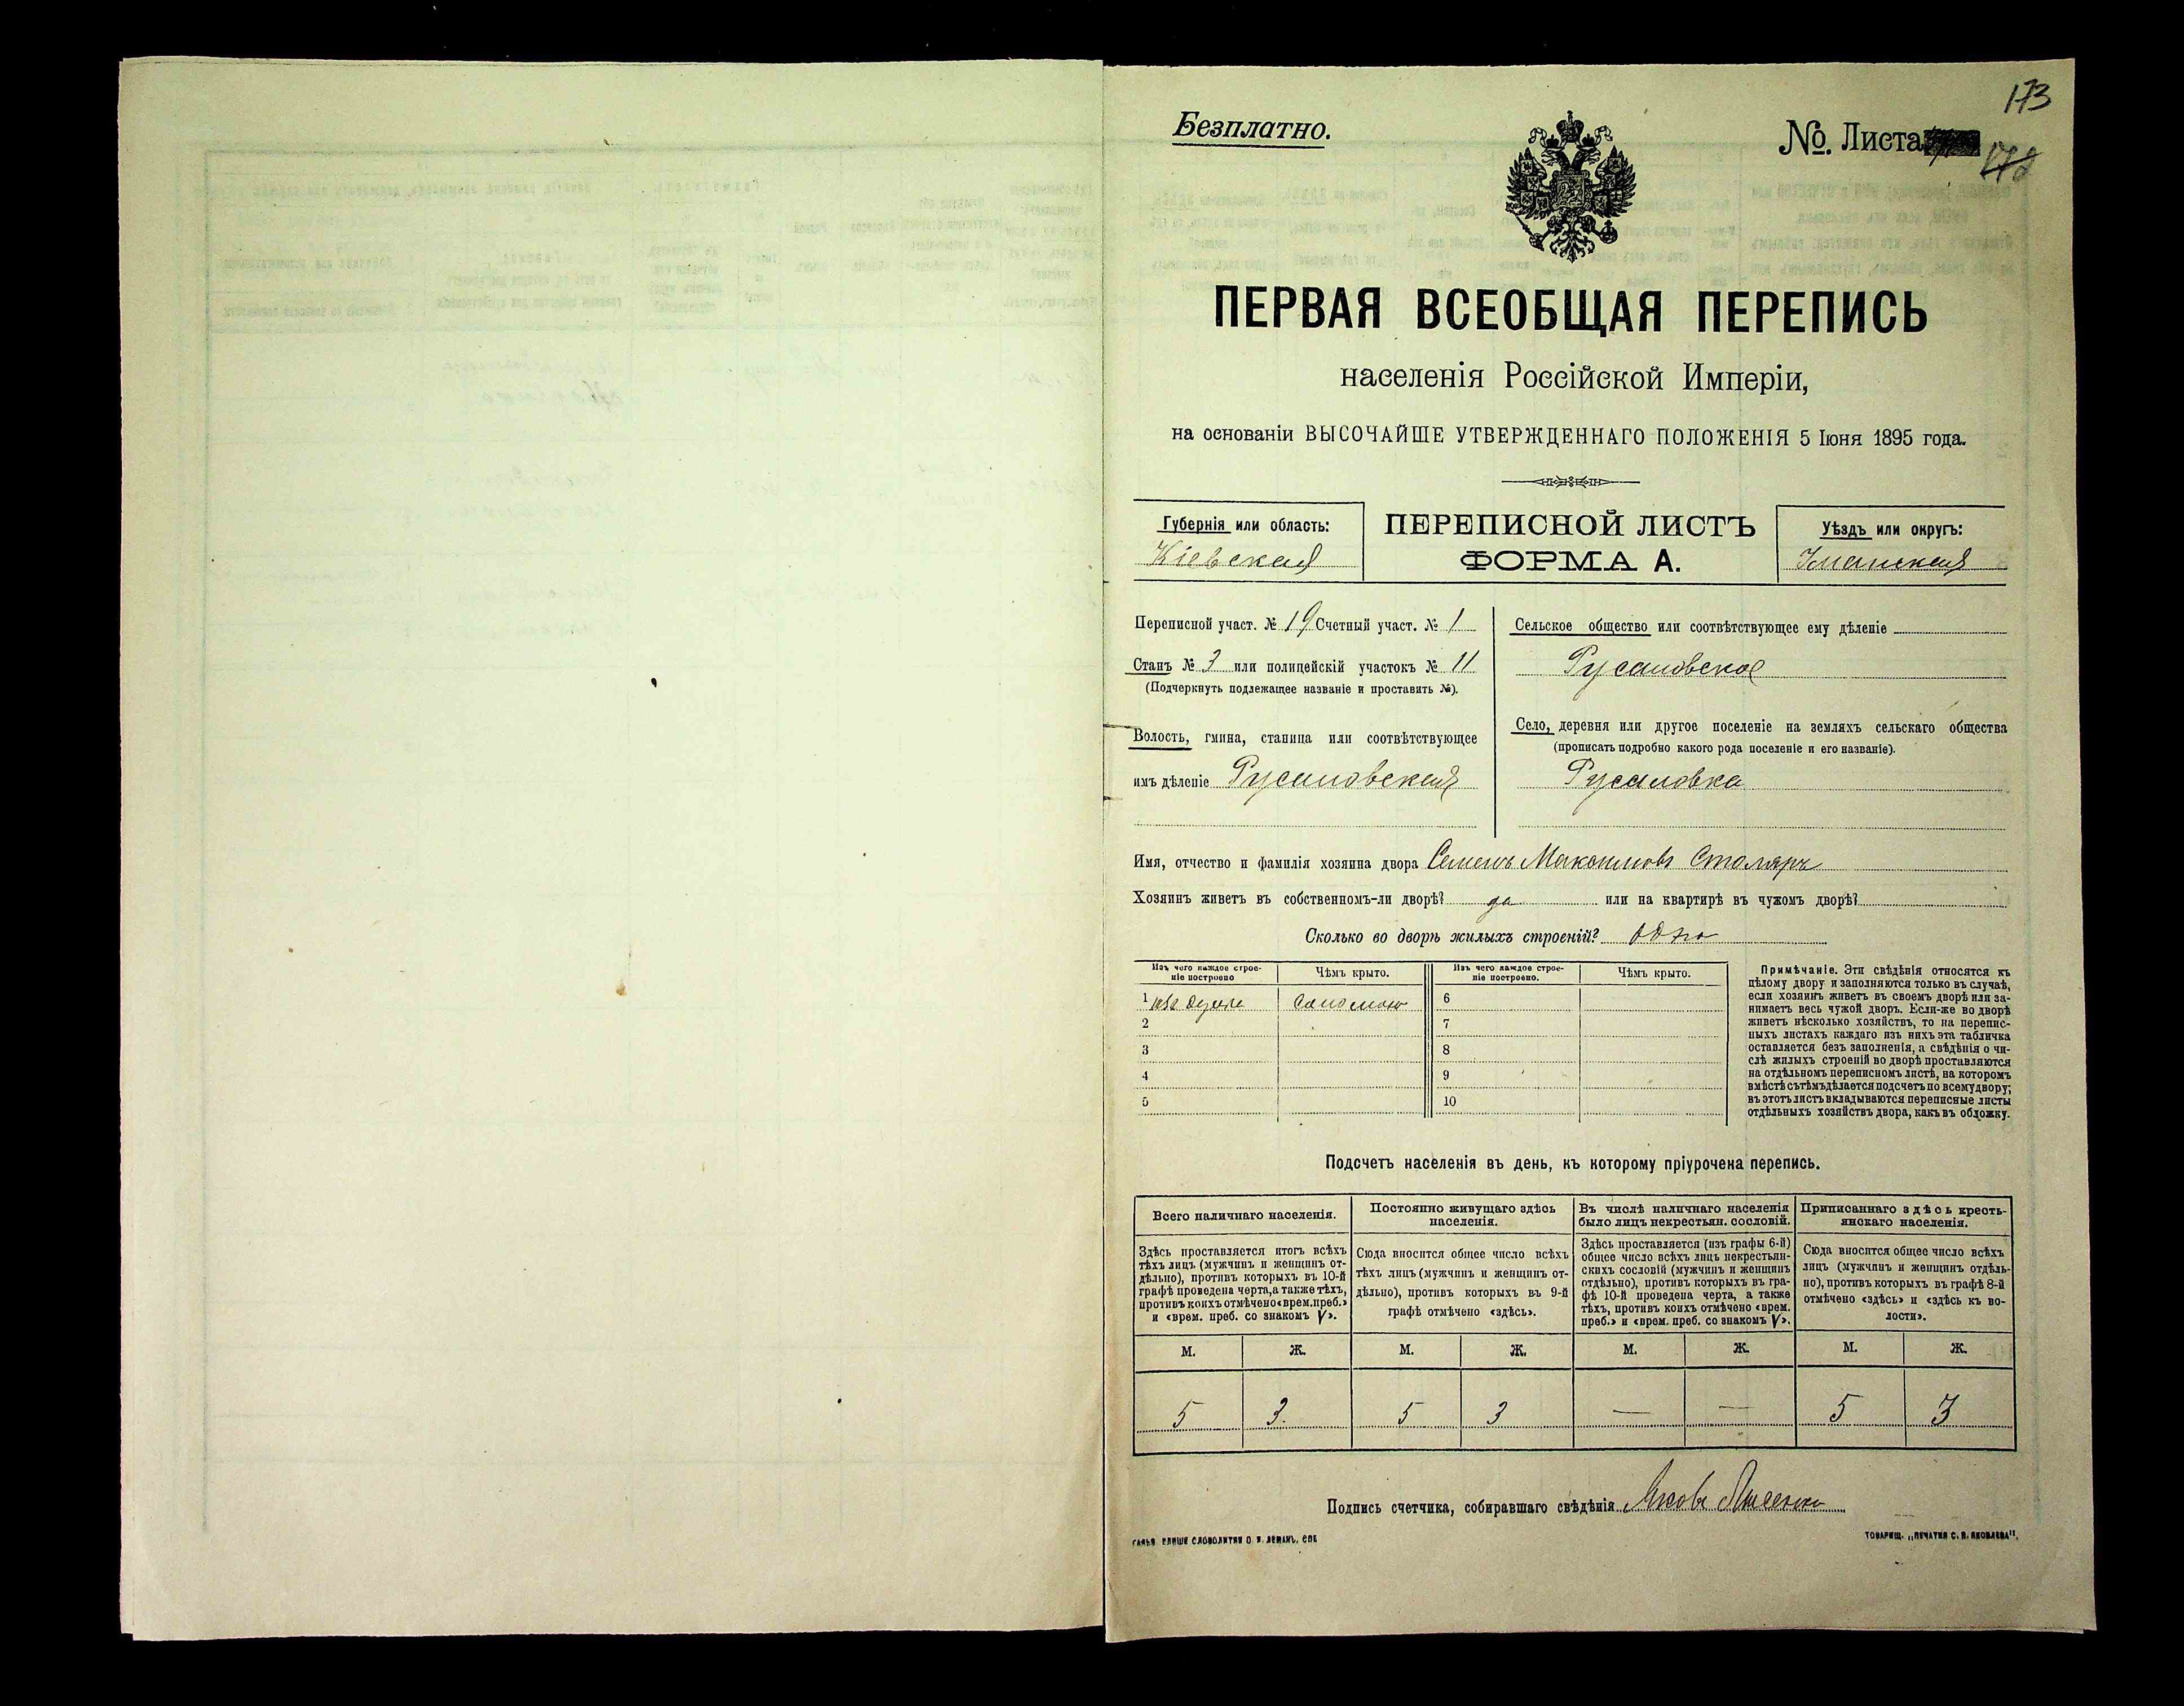 173
Безплатно.
№. Листа
ПЕРВАЯ ВСЕОБЩАЯ ПЕРЕПИСЬ
населенія Россійской Имперіи,
на основаніи ВЫСОЧАЙШЕ УТВЕРЖДЕННАГО ПОЛОЖЕНІЯ 5 Іюня 1895 года.
Губернія или область:
Кіевская
ПЕРЕПИСНОЙ ЛИСТЪ
ФОРМА А.
Уѣздъ или округъ:
Уманская
Переписной участ. № 19 Счетный участ. № 1
Станъ № 3 или полицейскій участокъ № 11
(Подчеркнуть подлежащее названіе и проставить №).
Волость, гмина, станица или соотвѣтствующее
имъ дѣленіе Русаловская
Сельское общество или соотвѣтствующее ему дѣленіе
Русаловское
Село, деревня или другое поселеніе на земляхъ сельскаго общества
(прописать подробно какого рода поселеніе и его названіе).
Русаловка
Имя, отчество и фамилія хозяина двора Семенъ Максимовъ Столяръ
Хозяинъ живетъ въ собственномъ-ли дворѣ? да или на квартирѣ въ чужомъ дворѣ?
Сколько во дворѣ жилыхъ строеній? одно
Изъ чего каждое строе-
ніе построено
Чѣмъ крыто.
Изъ чего каждое строе-
ніе построено.
Чѣмъ крыто.
1 изъ соломою 6
2 7
3 8
4 9
5 10
Примѣчаніе. Эти свѣдѣнія относятся къ
цѣлому двору и заполняются только въ случаѣ,
если хозяинъ живетъ въ своемъ дворѣ или за-
нимаетъ весь чужой дворъ. Если-же во дворѣ
живетъ нѣсколько хозяйствъ, то на перепис-
ныхъ листахъ каждаго изъ нихъ эта табличка
оставляется безъ заполненія, а свѣдѣнія о чи-
слѣ жилыхъ строеній во дворѣ проставляются
на отдѣльномъ переписномъ листѣ, на которомъ
вмѣстѣ съ тѣмъ дѣлается подсчетъ по всему двору;
въ этотъ листъ вкладываются переписные листы
отдѣльныхъ хозяйствъ двора, какъ въ обложку.
Подсчетъ населенія въ день, къ которому пріурочена перепись.
Всего наличнаго населенія.
Здѣсь проставляется итогъ всѣхъ
тѣхъ лицъ (мужчинъ и женщинъ от-
дѣльно), противъ которыхъ въ 10-й
графѣ проведена черта, а также тѣхъ,
противъ коихъ отмѣчено «врем. преб.»
и «врем. преб. со знакомъ V».
Постоянно живущаго здѣсь
населенія.
Сюда вносится общее число всѣхъ
тѣхъ лицъ (мужчинъ и женщинъ от-
дѣльно), противъ которыхъ въ 9-й
графѣ отмѣчено «здѣсь».
Въ числѣ наличнаго населенія
было лицъ некрестьян. сословій.
Здѣсь проставляется (изъ графы 6-й)
общее число всѣхъ лицъ некрестьян-
скихъ сословій (мужчинъ и женщинъ
отдѣльно), противъ которыхъ въ гра-
фѣ 10-й проведена черта, а также
тѣхъ, противъ коихъ отмѣчено «врем.
преб.» и «врем. преб. со знакомъ V».
Приписаннаго здѣсь кресть-
янскаго населенія.
Сюда вносится общее число всѣхъ
лицъ (мужчинъ и женщинъ отдѣль-
но), противъ которыхъ въ графѣ 8-й
отмѣчено «здѣсь» и «здѣсь къ во-
лости».
М. Ж. М. Ж. М. Ж. М. Ж.
5 3. 5 3 — — 5 3
Подпись счетчика, собиравшаго свѣдѣнія Яковъ Лысенко
КЛИШЕ СЛОВОЛИТНИ О. И. ЛЕМАНЪ, СПБ
ТОВАРИЩ. „ПЕЧАТНЯ С. П. ЯКОВЛЕВА".